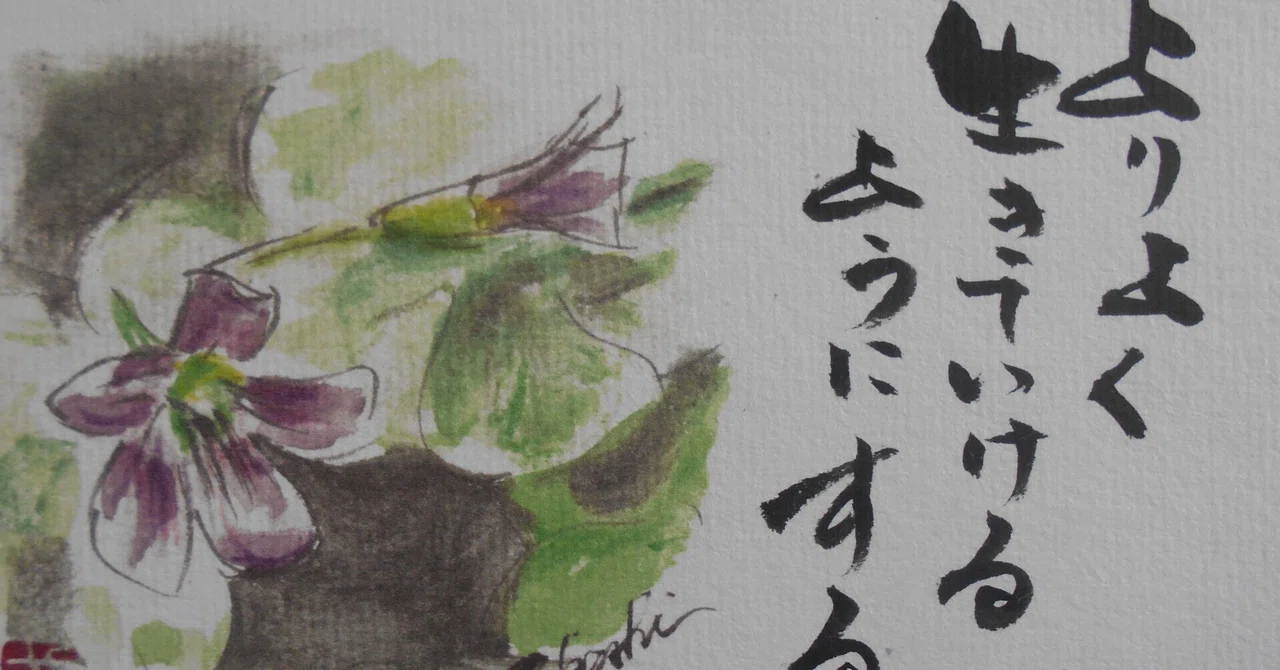 よりよく
生きていける
ようにする